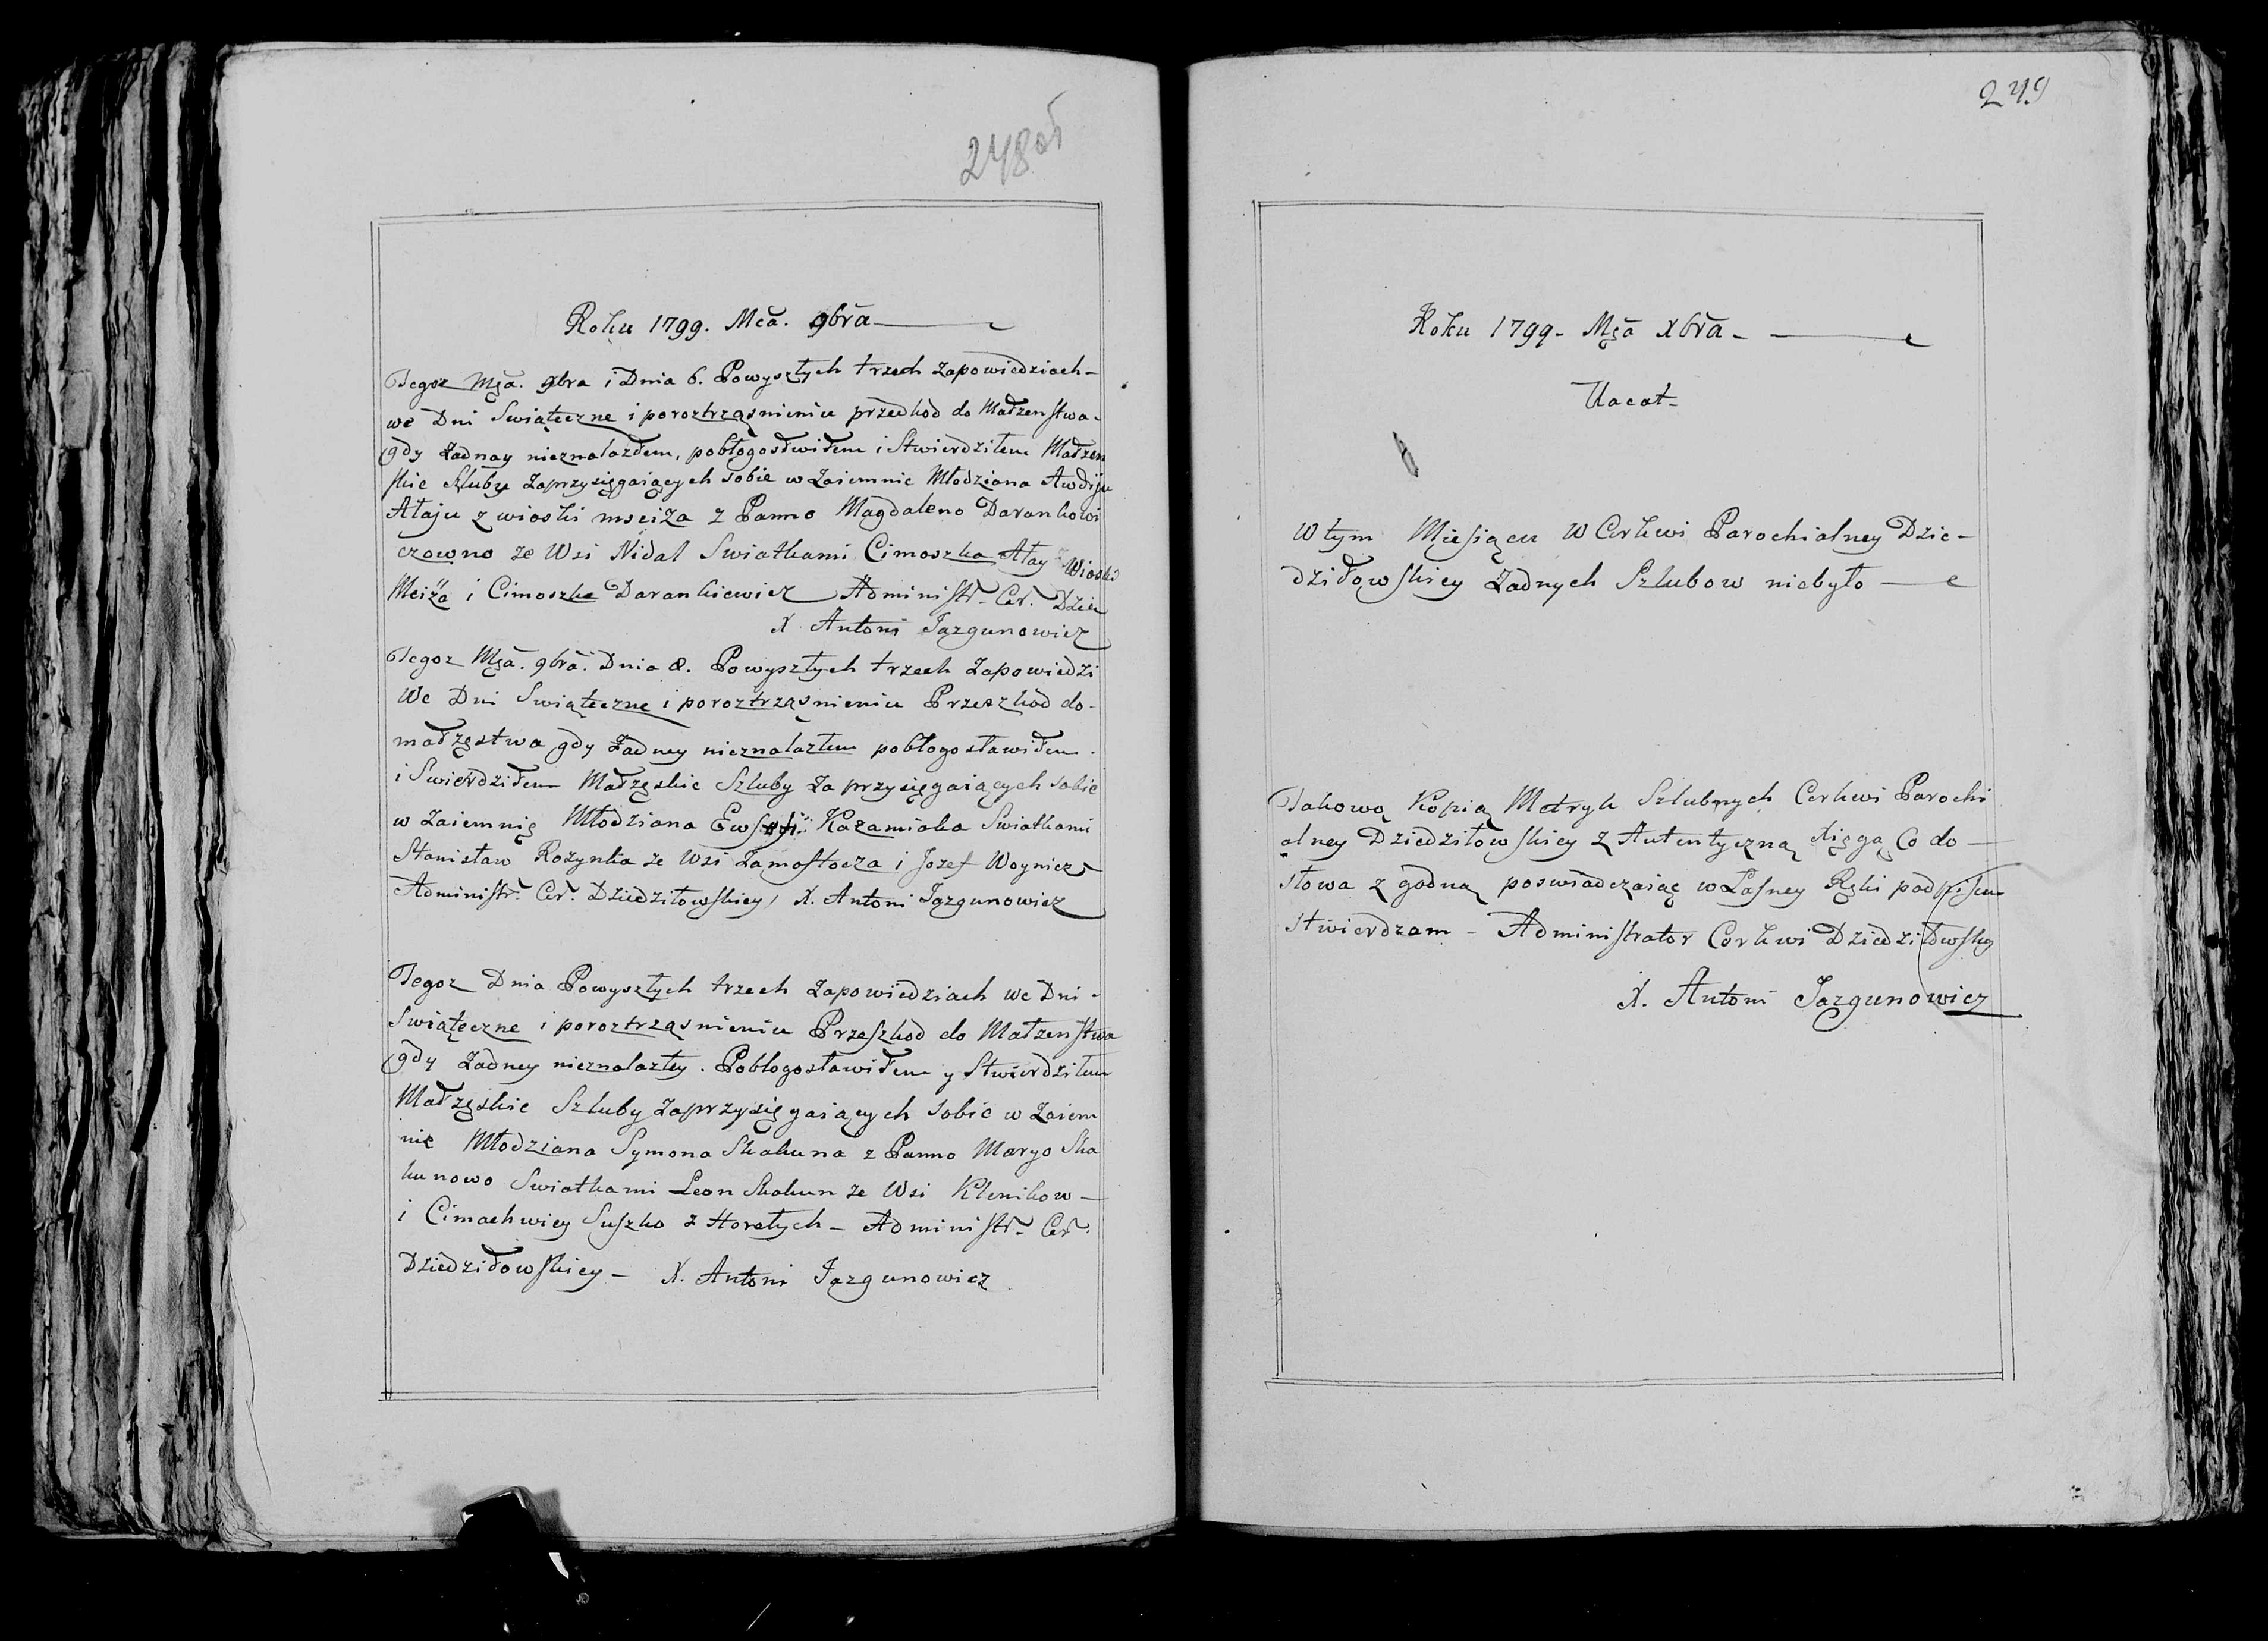 248 об
Roku 1799. Mča. 9bra
Tegoż Mča. 9bra i Dnia 6. Powyszłych trzech zapowiedziach
we Dni Swiąteczne i poroztrząsnieniu przedkod do Małzenstwa
gdy Żadnay nieznalazłem, pobłogosłwiłem i Stwierdziłem Małzen
skie Sluby Zaprzysięgaiących sobie w Zaiemnie Młodziana Awdiju
Ataju z wioski mseiża z Panno Magdaleno Darankowi
czowno ze Wsi Nidal Swiatkami Cimoszka Atay Wioski
Mciża i Cimoszka Darankiewicz Administr. Cer. Dzie
X Antoni Jazgunowicz
Tegoż Mča. 9bra. Dnia 8. Powyszłych trzech Zapowiedzi
We Dni Swiąteczne i poroztrząsnieniu Przeszkod do
małzęstwa gdy Żadney nieznalazłem pobłogosławiłem
i Swierdziłem Małzęskie Szluby Zaprzysięgaiących sobie
w Zaiemnię Młodziana Kazamiaka Swiatkami
Stanisław Rozynka ze Wsi Zamostocza i Jozef Woynicz
Administr. Cer. Dziedziłowskiey, X. Antoni Jazgunowicz
Tegoż Dnia Powyszłych trzech Zapowiedziach we Dni
Swiąteczne i poroztrząsnieniu Przeszkod do Małzenstwa
gdy Żadney nieznalazłey. Pobłogosławiłem y Stwierdziłem
Małzęskie Szluby Zaprzysięgaiących sobie w Zaiem
nie Młodziana Symona Skakuna z Panno Maryo Ska
kunowo Swiatkami Leon Skakun ze Wsi Klenikow
i Cimachwiey Suszko z Horełych Administr. Cer.
Dziedziłowskiey X. Antoni Jazgunowicz
249
Roku 1799 Mča Xbra
Uacat
W tym Miesiącu W Cerkwi Parochialney Dzie-
dziłowskiey Żadnych Szlubow niebyło
Takową Kopią Metryk Szlubnych Cerkwi Parochi
alney Dziedziłowskiey z Autentyczną Xięgą Co do
słowa zgodną poswiadczaiąc wLasney Ręki podpisem
stwierdzam Administrator Cerkwi Dziedziłowskiy
X. Antoni Jazgunowicz